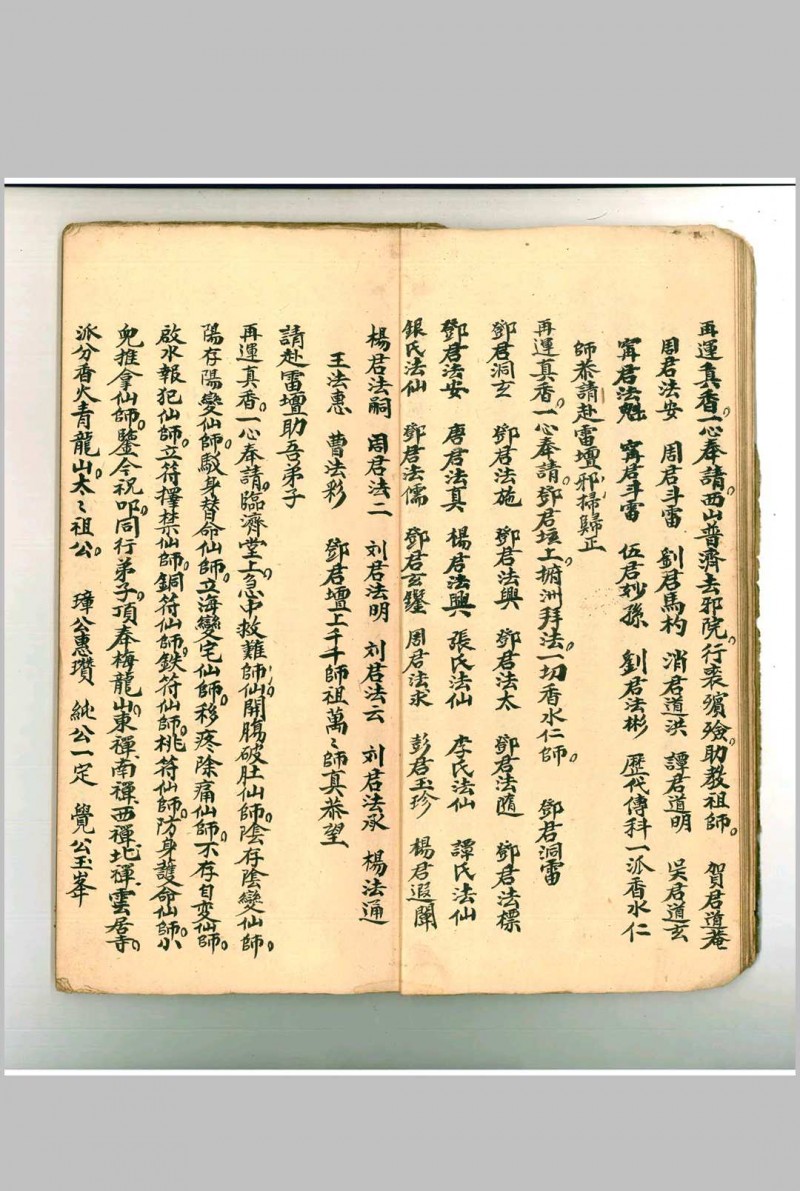 再運真香。一心奉請。西山普濟去邪院。行喪殯殮。助教祖師。 賀君道菴
周君法安 周君斗雷 劉君馬杓 消君道洪 譚君道明 吳君道玄
甯君法魁 甯君斗雷 伍君妙孫 劉君法彬 歷代傳科一派香水仁
師恭請赴雷壇邪掃歸正
再運真香。一心奉請。鄧君垓上擶洲拜法。一切香水仁師。 鄧君洞雷
鄧君洞玄 鄧君法施 鄧君法興 鄧君法太 鄧君法隨 鄧君法標
鄧君法安 唐君法真 楊君法興 張氏法仙 李氏法仙 譚氏法仙
銀氏法仙 鄧君法儒 鄧君玄鑑 周君法永 彭君玉珍 楊君遐闡
楊君法嗣 周君法二 刘君法明 刘君法云 刘君法承 楊法通
王法惠 曹法彩 鄧君壇上千千師祖萬〻師真恭望
請赴雷壇助吾弟子
再運真香。一心奉請。臨濟堂上急中救難師仙。開膓破肚仙師。陰存陰變仙師。
陽存陽變仙師。駁身替命仙師。立海變宅仙師。移疼除痛仙師。不存自变仙師。
啟水報犯仙師。立符擇禁仙師。銅符仙師。鉄符仙師。桃符仙師。防身護命仙師。小
児推拿仙師。鑒今祝叩。同行弟子。頂奉梅龍山。東禪南禪西禪北禪雲居寺。
派分香火青龍山。太〻祖公。 璋公惠瓚 純公一定 覺公玉峯